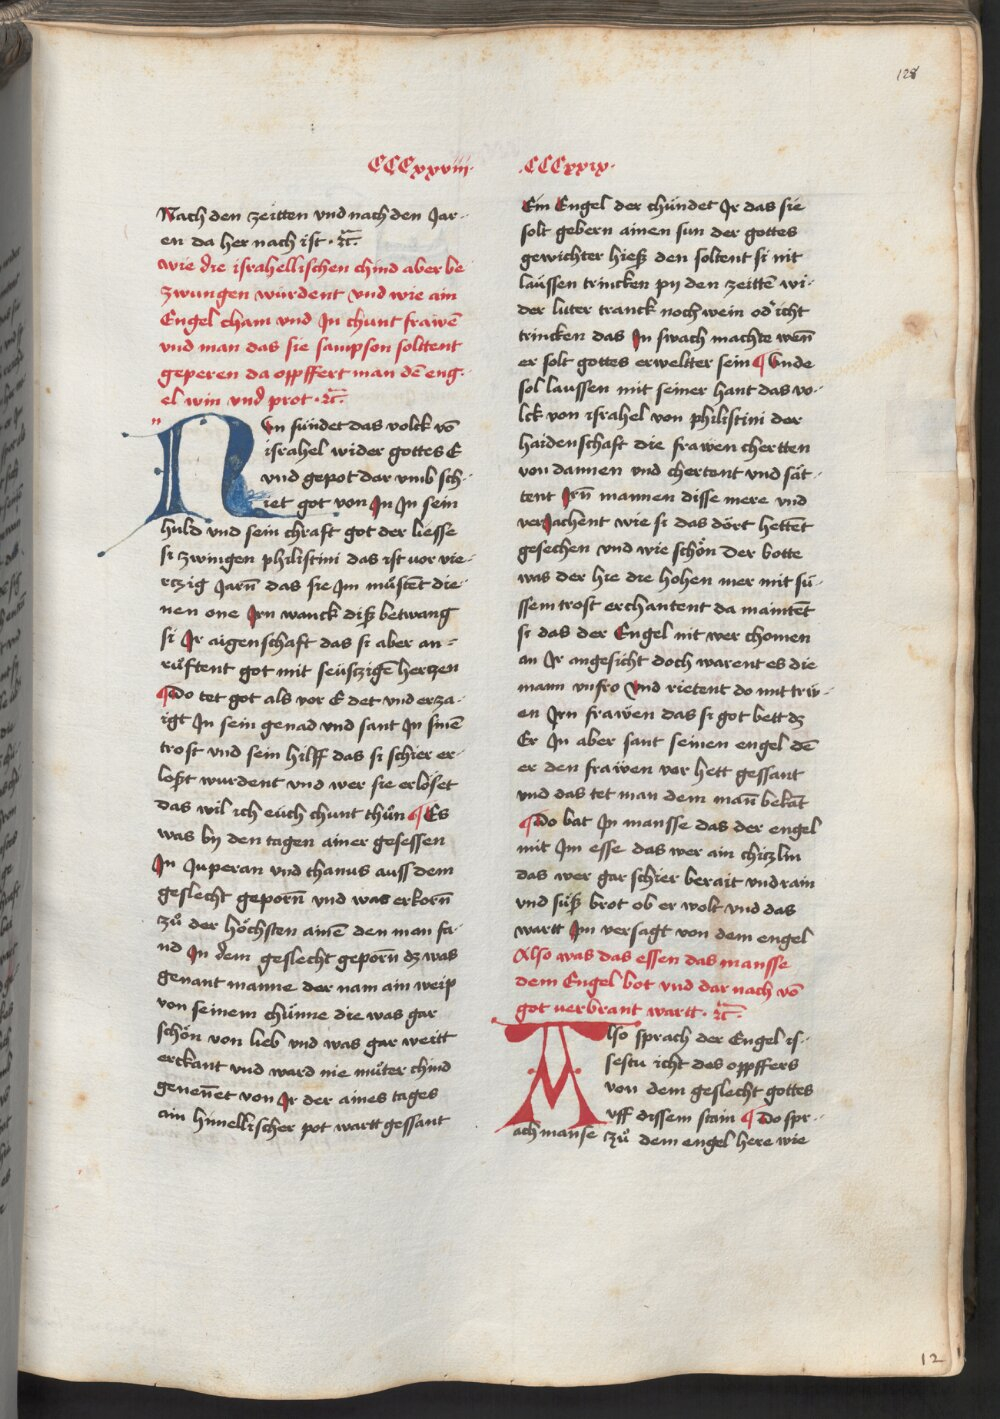 128
CCCxxviii·
Nach den zeitten vnd nach den Jar-
en da her nach ist · ꝛc̄·
wie die israhellischen chind aber be
zwungen wurdent vnd wie ain
Engel cham vnd Jn chunt frawē
vnd man das sie sampson solttent
geperen da opffert man dē eng-
el win vnd prot · ꝛc̄·
Nun sündet das volck vō
israhel wider gottes E
vnd gepot dar vmb sch-
iet got von Jn Jn sein
huld vnd sein chraft got der liesse
si zwingen philistini das ist vor vie-
rczig Jarn̄ das sie Jm müstēt die-
nen one Jrn wanck diß betwang
si Jr aigenschaft das si aber an-
rüftent got mit seüfczigē hertzen
¶Do tet got als vor E det vnd erza-
igt Jn sein genad vnd sant Jn sinē
trost vnd sein hilff das si schier er-
loßt wurdent vnd wer sie erlöset
das wil ich eüch chunt thůn ¶Es
was bÿ den tagen ainer gesessen
Jn Juperan vnd thanus auss dem
geslecht geporn̄ vnd was erkorn̄
zů der höchsten ainē den men fa-
nd Jn dem geslecht geporn̄ dz was
genant manne der nam ain weip
von seinem chünne die was gar
schön von lieb vnd was gar weitt
erckant vnd ward nie můter chind
genen̄et von Jr der aines tages
ain himellischer pot wartt gessant
·CCCxxix·
Ein Engel der chündet Jr das sie
solt gebern ainen sun der gottes
gewichter hieß den soltent si nit
laussen trincken pÿ den zeittē wi-
der luter tranck noch wein od' icht
trincken das Jn swach machte wen̄
er solt gottes erweltter sein ¶Vnde
sol laussen mit seiner hant das vo-
lck von israhel von philistini der
haidenschaft die frawen chertten
von dannen vnd chertent vnd sät-
tent Jrn̄ mannen disse mere vnd
verJachent wie si das dört hettēt
gesechen vnd wie schön der botte
was der hie die hohen mer mit sü-
ssem trost erchantent da maintēt
si das der Engel nit wer chomen
an Jr angesicht doch warent es die
mann vnfro Vnd rietent do mit triw-
en Jrn frawen das si got bett dz
Er Jn aber sant seinen engel dē
er den frawen vor hett gessant
vnd das tet man dem man̄ bekāt
¶Do bat Jn mansse das der engel
mit Jm esse das wer ain chiczlin
das wer gar schier berait vnd rain
vnd süß brot ob er wolt vnd das
wartt Jm versagt von dem engel
Also was das essen das mansse
dem Engel bot vnd dar nach vō
got verbrant wartt · ꝛc̄·
Also sprach der Engel is-
sestu icht des opffers
von dem geslecht gottes
vff dissem stain ¶Do spr-
ach manse zů dem engel here wie
12